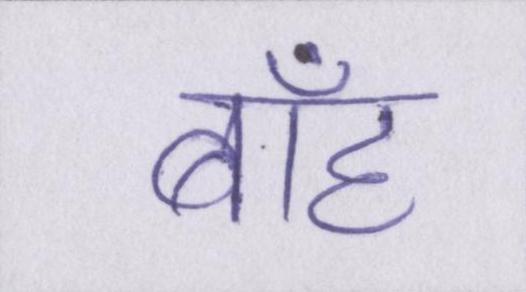 बाँह